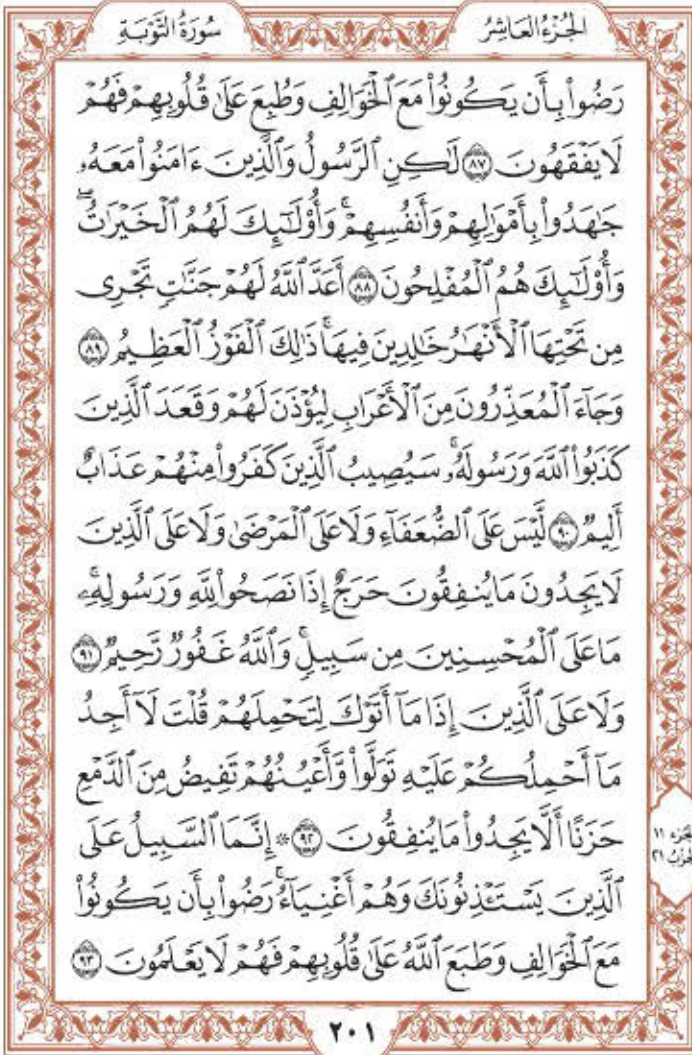 الجُزْءُ العَاشِرُ
سُورَةُ التَّوْبَةِ
رَضُواْ بِأَن يَكُونُواْ مَعَ ٱلْخَوَالِفِ وَطُبِعَ عَلَىٰ قُلُوبِهِمْ فَهُمْ
لَا يَفْقَهُونَ ٨٧ لَٰكِنِ ٱلرَّسُولُ وَٱلَّذِينَ ءَامَنُواْ مَعَهُۥ
جَٰهَدُواْ بِأَمْوَٰلِهِمْ وَأَنفُسِهِمْۚ وَأُوْلَٰٓئِكَ لَهُمُ ٱلْخَيْرَٰتُۖ
وَأُوْلَٰٓئِكَ هُمُ ٱلْمُفْلِحُونَ ٨٨ أَعَدَّ ٱللَّهُ لَهُمْ جَنَّٰتٍ تَجْرِى
مِن تَحْتِهَا ٱلْأَنْهَٰرُ خَٰلِدِينَ فِيهَاۚ ذَٰلِكَ ٱلْفَوْزُ ٱلْعَظِيمُ ٨٩
وَجَآءَ ٱلْمُعَذِّرُونَ مِنَ ٱلْأَعْرَابِ لِيُؤْذَنَ لَهُمْ وَقَعَدَ ٱلَّذِينَ
كَذَبُواْ ٱللَّهَ وَرَسُولَهُۥۚ سَيُصِيبُ ٱلَّذِينَ كَفَرُواْ مِنْهُمْ عَذَابٌ
أَلِيمٌ ٩٠ لَّيْسَ عَلَى ٱلضُّعَفَآءِ وَلَا عَلَى ٱلْمَرْضَىٰ وَلَا عَلَى ٱلَّذِينَ
لَا يَجِدُونَ مَا يُنفِقُونَ حَرَجٌ إِذَا نَصَحُواْ لِلَّهِ وَرَسُولِهِۦۚ
مَا عَلَى ٱلْمُحْسِنِينَ مِن سَبِيلٍۚ وَٱللَّهُ غَفُورٌ رَّحِيمٌ ٩١
وَلَا عَلَى ٱلَّذِينَ إِذَا مَآ أَتَوْكَ لِتَحْمِلَهُمْ قُلْتَ لَآ أَجِدُ
مَآ أَحْمِلُكُمْ عَلَيْهِ تَوَلَّواْ وَّأَعْيُنُهُمْ تَفِيضُ مِنَ ٱلدَّمْعِ
حَزَنًا أَلَّا يَجِدُواْ مَا يُنفِقُونَ ٩٢ ۞ إِنَّمَا ٱلسَّبِيلُ عَلَى
ٱلَّذِينَ يَسْتَـْٔذِنُونَكَ وَهُمْ أَغْنِيَآءُۚ رَضُواْ بِأَن يَكُونُواْ
مَعَ ٱلْخَوَالِفِ وَطَبَعَ ٱللَّهُ عَلَىٰ قُلُوبِهِمْ فَهُمْ لَا يَعْلَمُونَ ٩٣
جزء ١١
حزب ٢١
٢٠١